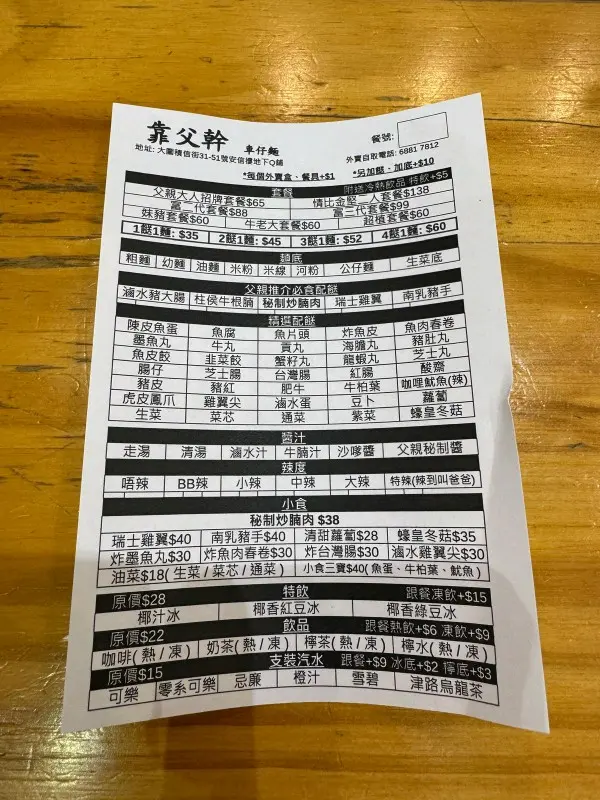 靠父幹 車仔麵
餐號:
地址: 大圍積信街31-51號安信樓地下Q鋪
外賣自取電話: 6881 7812
*每個外賣盒、餐具+$1 *另加餸、加底+$10
套餐 附送冷熱飲品 特飲+$5
父親大人招牌套餐$65 情比金堅二人套餐$138
富一代套餐$88 富二代套餐$99
妹豬套餐$60 牛老大套餐$60 超值套餐$60
1餸1麵: $35 2餸1麵: $45 3餸1麵: $52 4餸1麵: $60
麵底
粗麵 幼麵 油麵 米粉 米線 河粉 公仔麵 生菜底
父親推介必食配餸
滷水豬大腸 柱侯牛根腩 秘制炒腩肉 瑞士雞翼 南乳豬手
精選配餸
陳皮魚蛋 魚腐 魚片頭 炸魚皮 魚肉春卷
墨魚丸 牛丸 貢丸 海膽丸 豬肚丸
魚皮餃 韭菜餃 蟹籽丸 龍蝦丸 芝士丸
腸仔 芝士腸 台灣腸 紅腸 酸齋
豬皮 豬紅 肥牛 牛柏葉 咖哩魷魚(辣)
虎皮鳳爪 雞翼尖 滷水蛋 豆卜 蘿蔔
生菜 菜芯 通菜 紫菜 蠔皇冬菇
醬汁
走湯 清湯 滷水汁 牛腩汁 沙嗲醬 父親秘制醬
辣度
唔辣 BB辣 小辣 中辣 大辣 特辣(辣到叫爸爸)
小食
秘制炒腩肉 $38
瑞士雞翼$40 南乳豬手$40 清甜蘿蔔$28 蠔皇冬菇$35
炸墨魚丸$30 炸魚肉春卷$30 炸台灣腸$30 滷水雞翼尖$30
油菜$18( 生菜 / 菜芯 / 通菜 ) 小食三寶$40( 魚蛋、牛柏葉、魷魚 )
原價$28 特飲 跟餐凍飲+$15
椰汁冰 椰香紅豆冰 椰香綠豆冰
原價$22 飲品 跟餐熱飲+$6 凍飲+$9
咖啡( 熱 / 凍 ) 奶茶( 熱 / 凍 ) 檸茶( 熱 / 凍 ) 檸水( 熱 / 凍 )
原價$15 支裝汽水 跟餐+$9 冰底+$2 檸底+$3
可樂 零系可樂 忌廉 橙汁 雪碧 津路烏龍茶